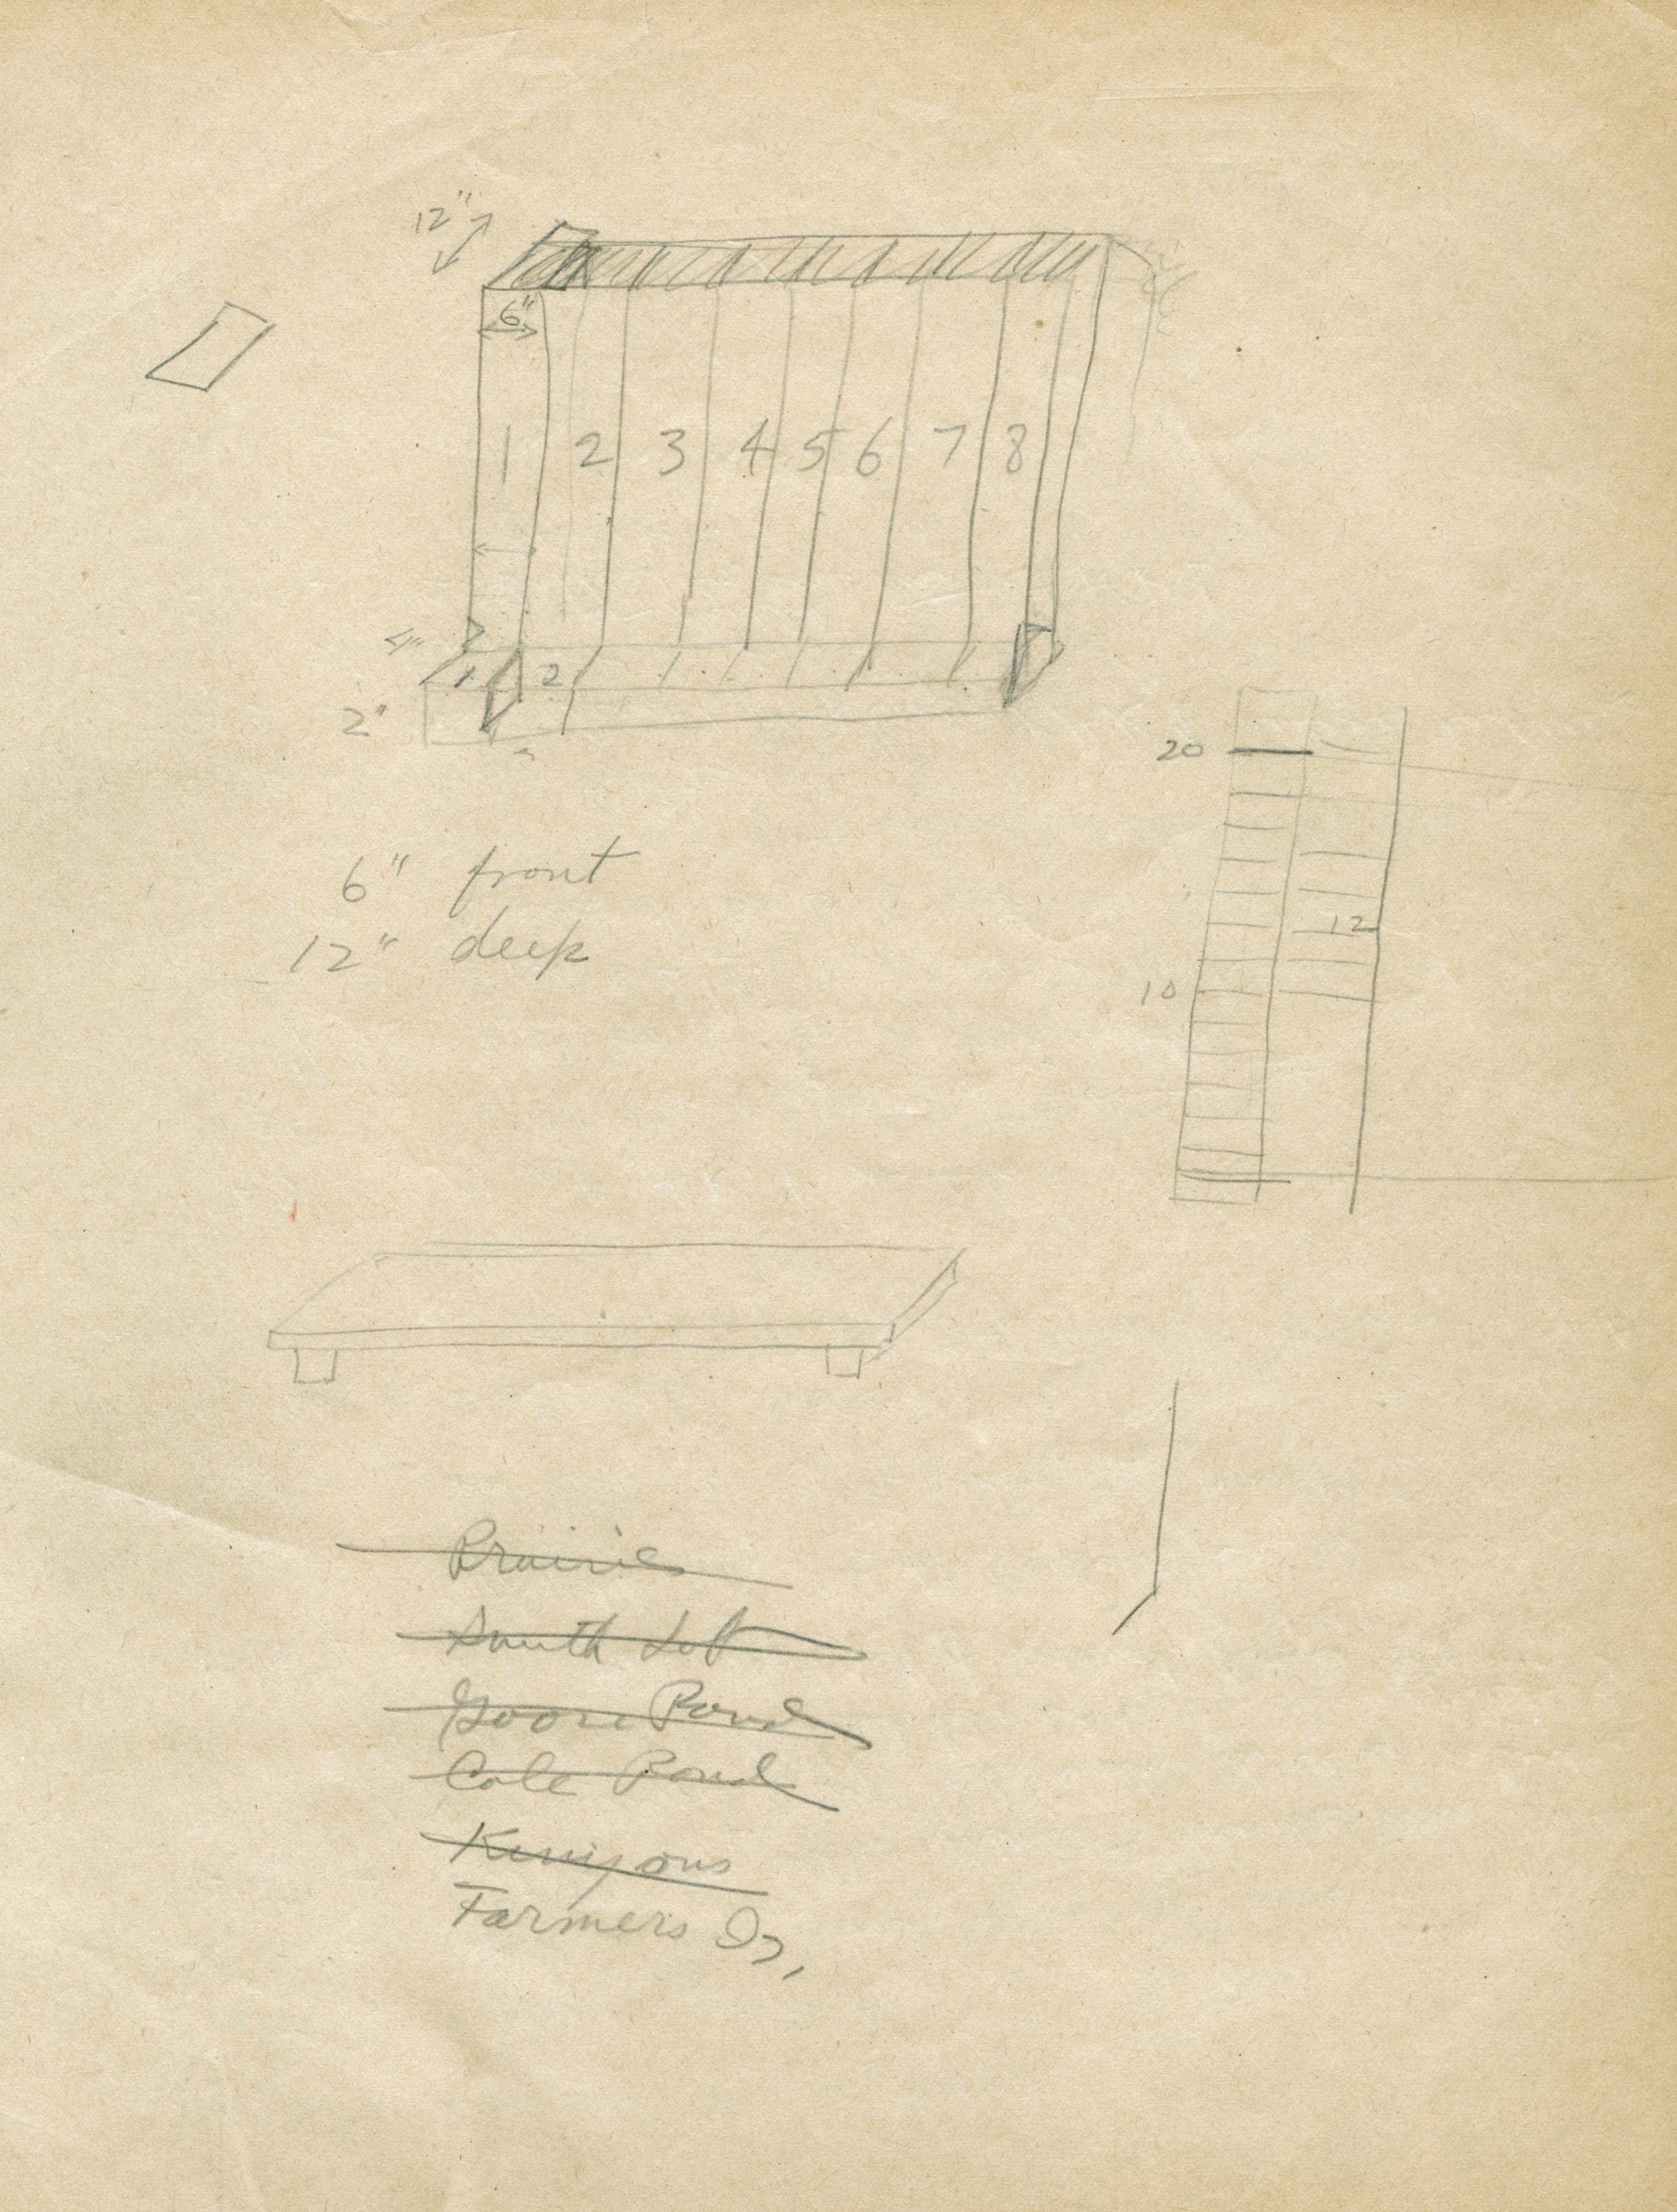 12"
6"
1 2 3 4 5 6 7 8
4"
1 2
2"
20
6" front
12" deep
12
10
Prairie
South Lot
Goose Pond
Cole Pond
Kenyons
Farmers